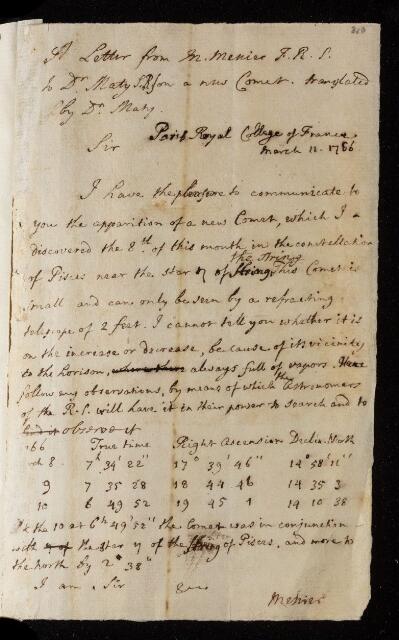 A Letter from M. Messier F.R.S.
to Dr Maty S.R.S on a new Comet. translated
by Dr. Maty.
Paris Royal College of France
Sir
March 12. 1766
I have the pleasure to communicate to
you the apparition of a new Comet, which I
discovered the 8th of this month, in the constellation
of Pisces near the star η of the string this Comet is
small and can only be seen by a refracting
telescope of 2 feet. I cannot tell you whether it is
on the increase or decrease, because of its vicinity
to the horison, always full of vapors. Here
follow my observations, by means of which the Astronomers
of the R.S. will have it in their power to search and to
observe it
766 True time Right Ascension Declin. North
rch 8. 7h 34' 22" 17° 39' 46" 14° 58' 11"
9 7 35 28 18 44 46 14 35 3
10 6 49 52 19 45 1 14 10 38
the 10 at 6h 49' 52" the Comet was in conjunction
with the star η of the string of Pisces, and more to
the North by 2° 38"
I am Sir &c
Messier